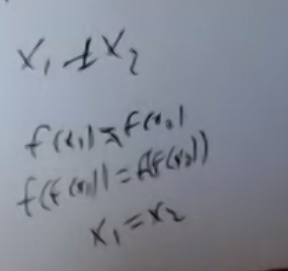 x₁ ≠ x₂
f(x₁) = f(x₂)
f(f(x₁)) = f(f(x₂))
x₁ = x₂